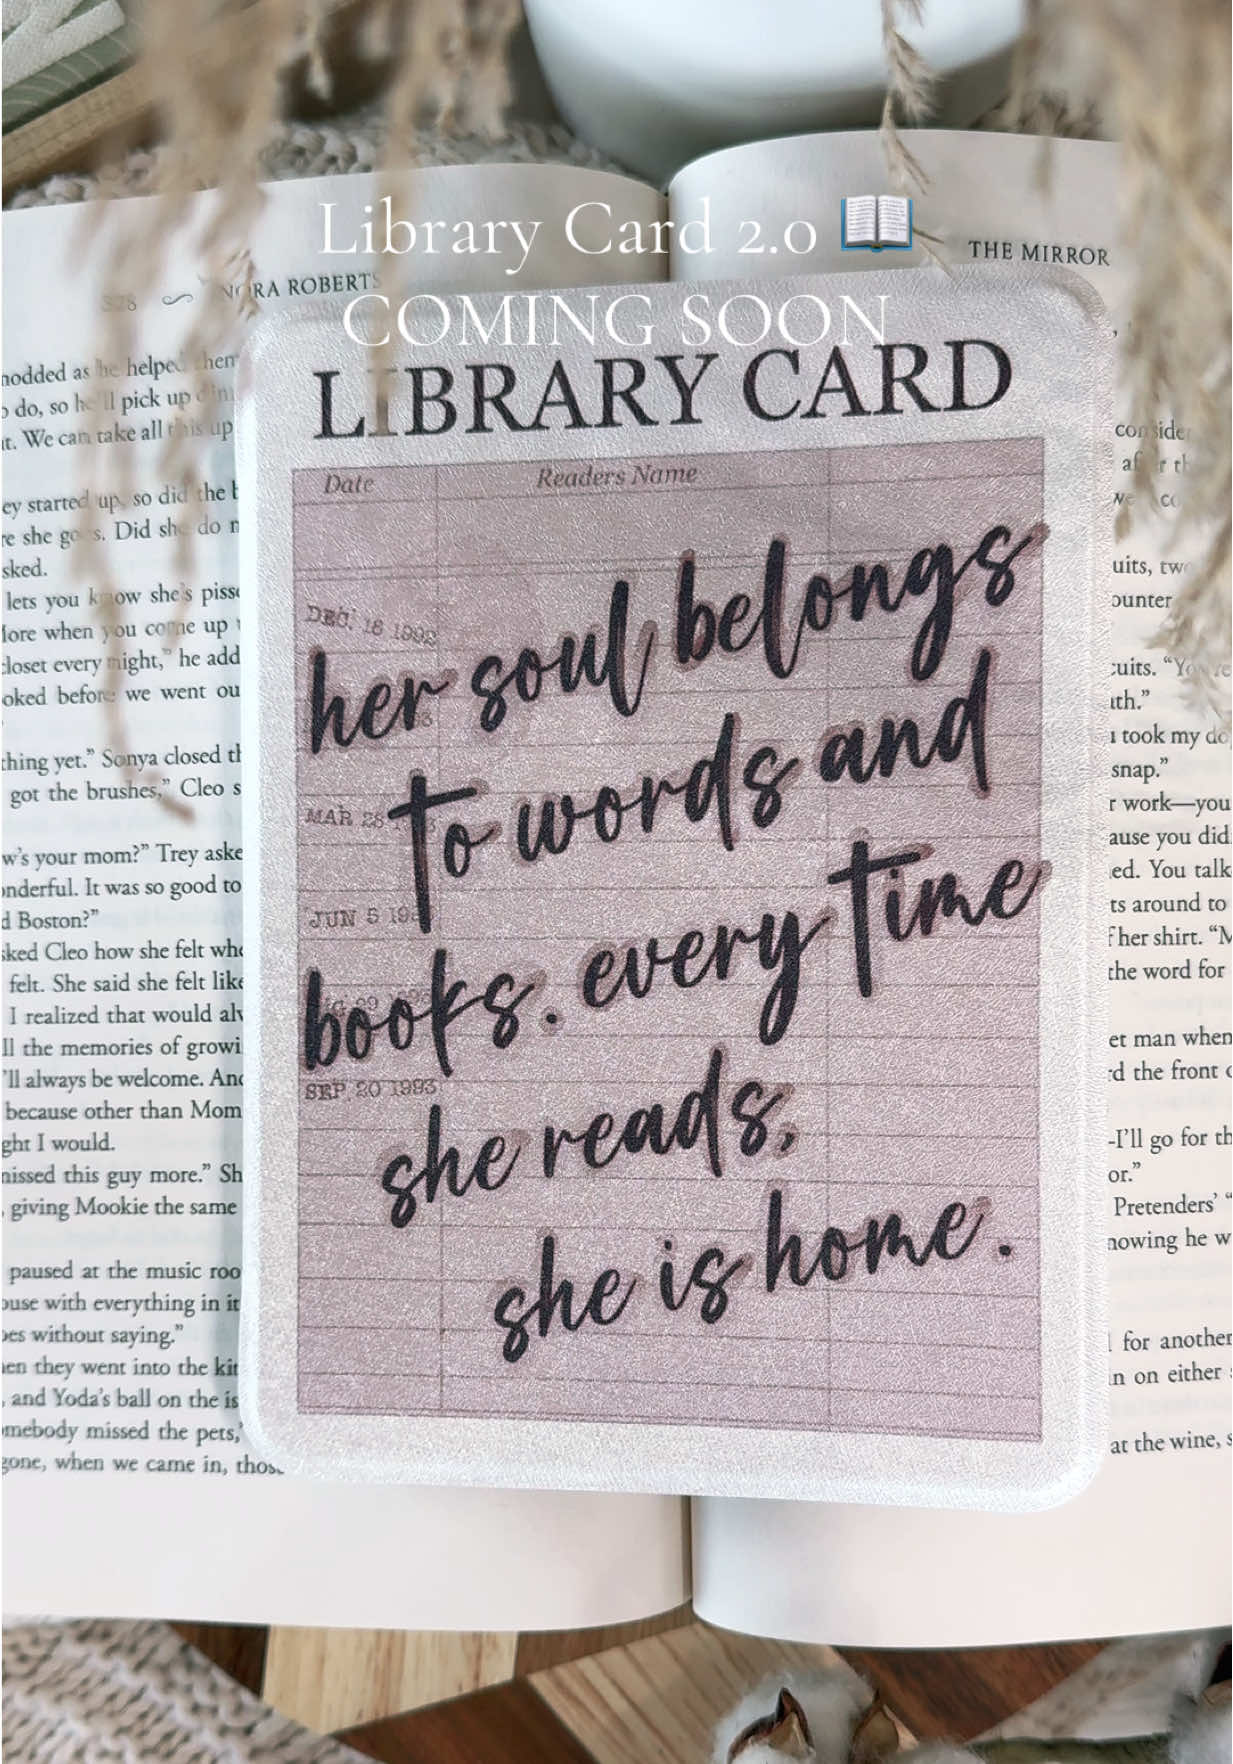 Library Card 2.0 📖
COMING SOON
NORA ROBERTS
THE MIRROR
LIBRARY CARD
Date Readers Name
DEC. 16 1992
MAR 28
JUN 5
SEP 20 1993
her soul belongs
to words and
books. every time
she reads,
she is home.
nodded as he helped them
do, so he'll pick up
We can take all this up
started up, so did the
she goes. Did she do
sked.
lets you know she's
more when you come up
closet every night,” he add
oked before we went ou
thing yet.” Sonya closed
got the brushes,” Cleo s
w's your mom?” Trey aske
onderful. It was so good to
d Boston?”
sked Cleo how she felt whe
felt. She said she felt like
I realized that would
ll the memories of growi
'll always be welcome. And
because other than Mom
ght I would.
missed this guy more.” Sh
, giving Mookie the same
paused at the music roo
ouse with everything in it
oes without saying.”
en they went into the kit
, and Yoda's ball on the is
mebody missed the pets,”
gone, when we came in, those
conside
uits, two
ounter
cuits. “You're
ath.”
took my
snap.”
r work—you
ause you did
ed. You talk
ts around to
f her shirt. “M
the word for
et man when
rd the front
-I'll go for th
or.”
Pretenders' “
nowing he w
for another
n on either
at the wine, s